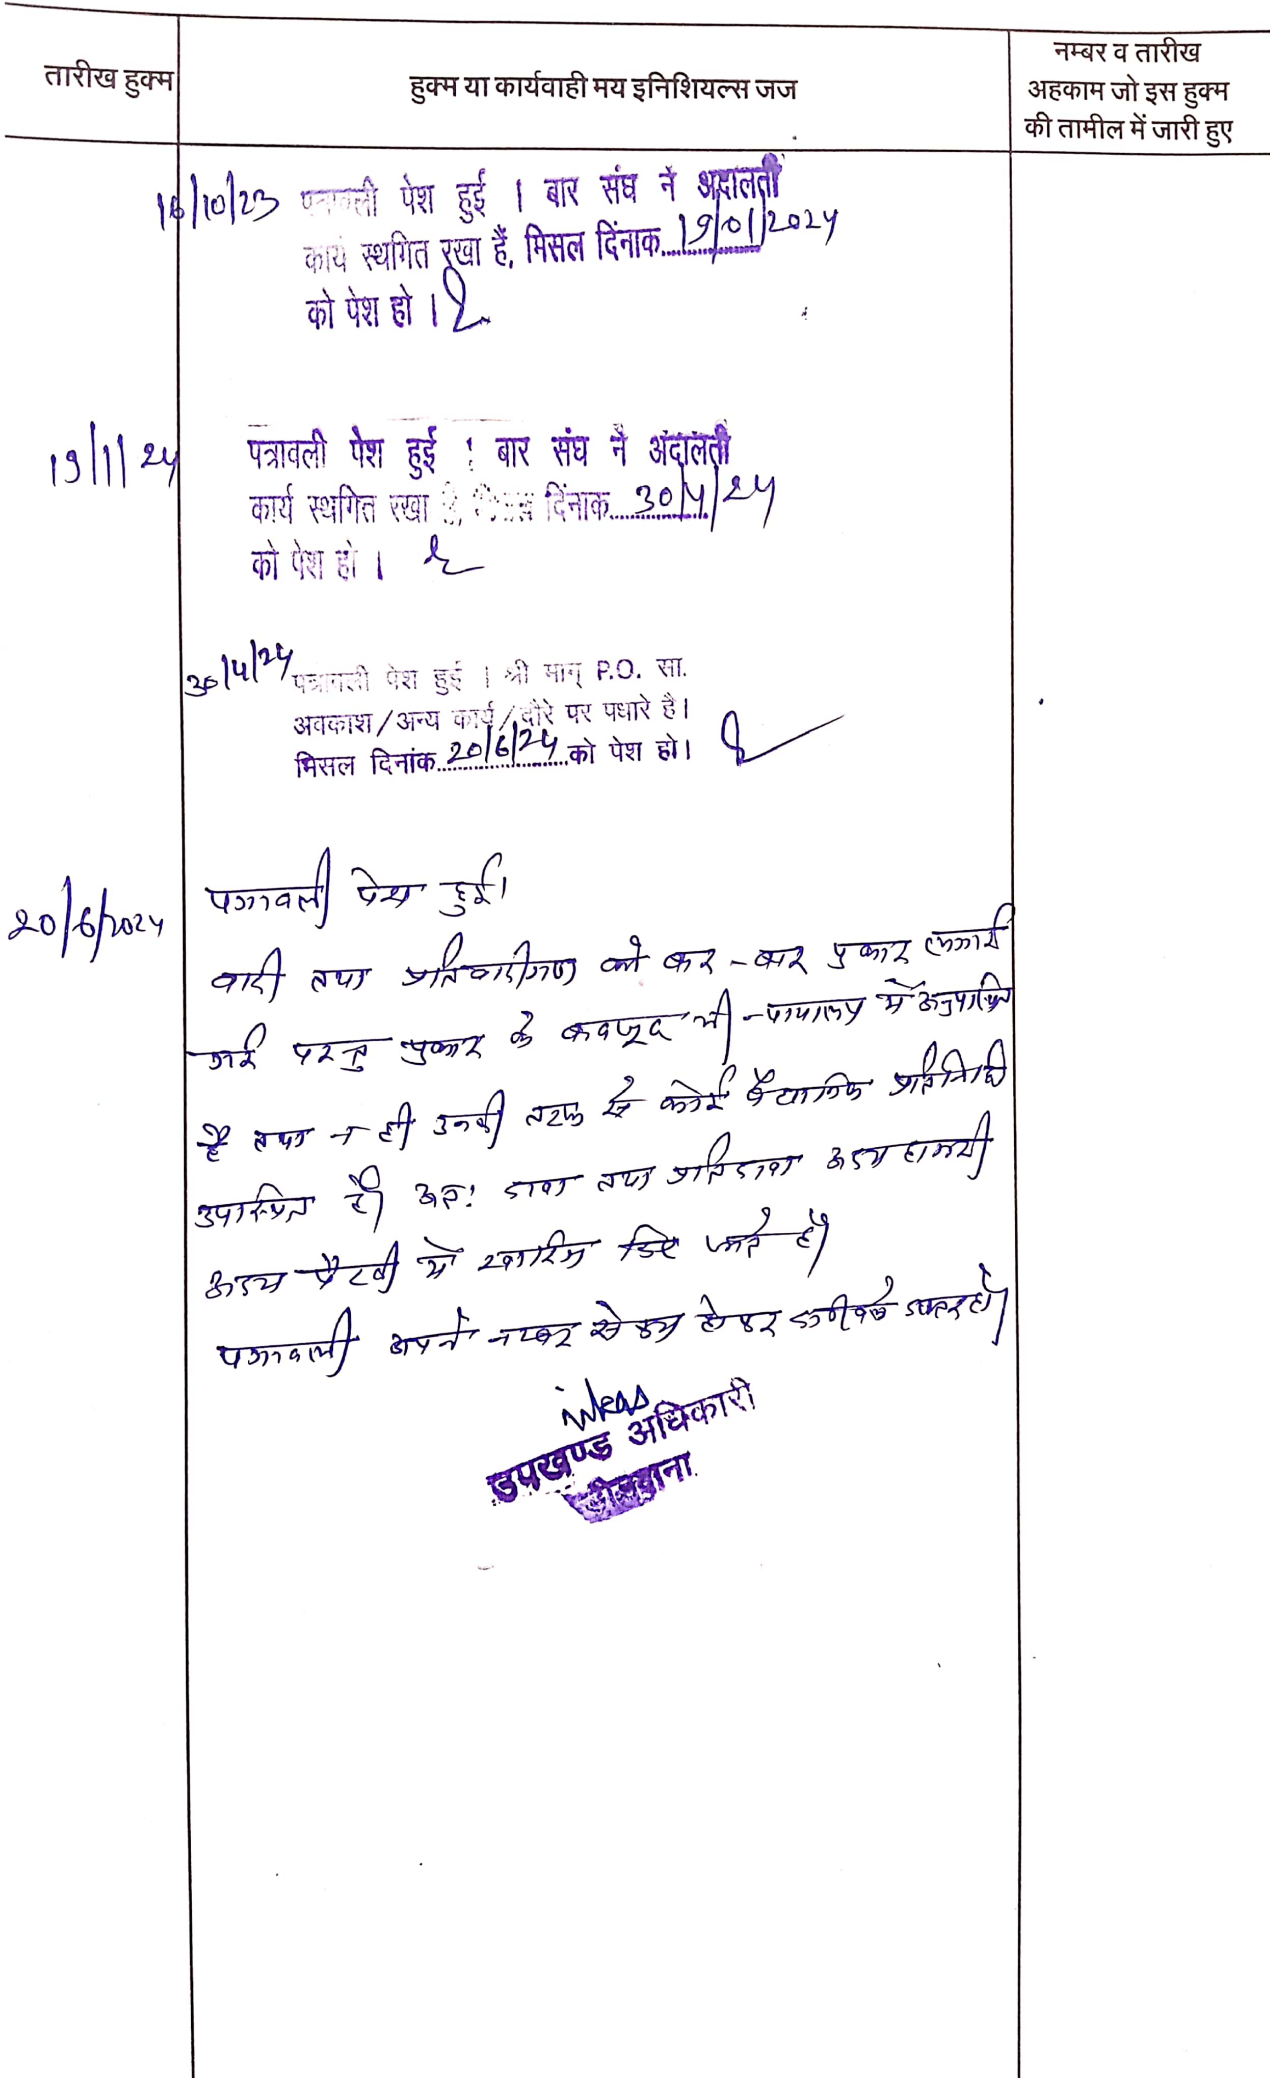 तारीख हुक्म
हुक्म या कार्यवाही मय इनिशियल्स जज
नम्बर व तारीख
अहकाम जो इस हुक्म
की तामील में जारी हुए
16/10/23 पत्रावली पेश हुई । बार संघ ने अदालती
कार्य स्थगित रखा हैं, मिसल दिंनाक 19/01/2024
को पेश हो ।
19/1/24 पत्रावली पेश हुई । बार संघ ने अदालती
कार्य स्थगित रखा है, मिसल दिंनाक 30/4/24
को पेश हो ।
30/4/24 पत्रावली पेश हुई । श्री मान् P.O. सा.
अवकाश/अन्य कार्य/दौरे पर पधारे है।
मिसल दिनांक 20/6/24 को पेश हो।
20/6/2024 पत्रावली पेश हुई।
वादी तथा प्रतिवादीगण को बार-बार पुकार लगवाई
गई परन्तु पुकार के बावजूद भी न्यायालय में अनुपस्थित
है तथा न ही उनकी तरफ से कोई वैधानिक प्रतिनिधि
उपस्थित है। अतः दावा तथा प्रतिदावा अदम हाजरी
अदम पैरवी में खारिज किए जाते है।
पत्रावली अपने नम्बर से कम होकर दाखिल दफ्तर हो।
उपखण्ड अधिकारी
डीडवाना